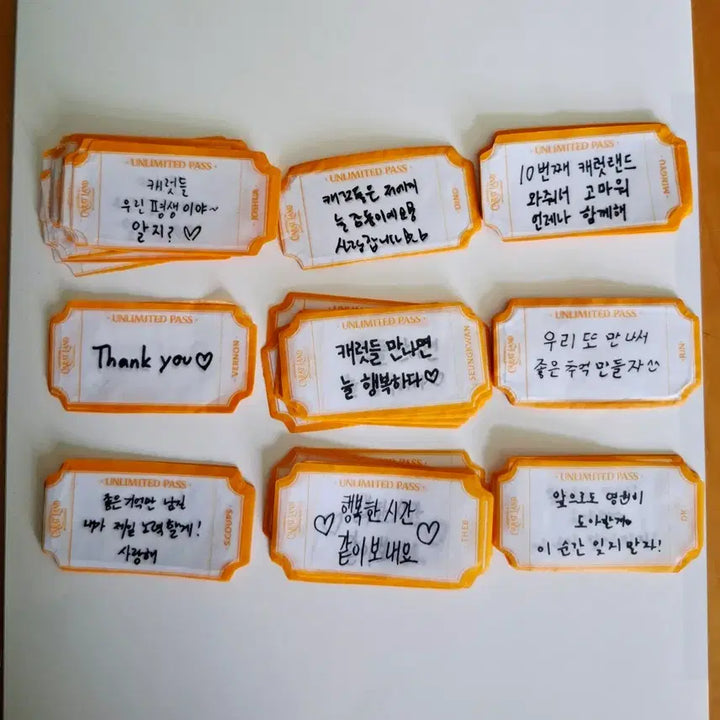 UNLIMITED PASS
캐럿들
우린 평생이야~
알지? ♡
CARAT LAND
JOSHUA
UNLIMITED PASS
늘 감동이에요
사랑합니다
CARAT LAND
DINO
UNLIMITED PASS
10번째 캐럿랜드
와줘서 고마워
언제나 함께해
CARAT LAND
MINGYU
UNLIMITED PASS
Thank you ♡
CARAT LAND
VERNON
UNLIMITED PASS
캐럿들 만나면
늘 행복하다 ♡
CARAT LAND
SEUNGKWAN
UNLIMITED PASS
우리 또 만나서
좋은 추억 만들자 ^^
CARAT LAND
UNLIMITED PASS
좋은 기억만 남길
내가 제일 노력할게!
사랑해
CARAT LAND
S.COUPS
UNLIMITED PASS
♡ 행복한 시간 ♡
같이 보내요
CARAT LAND
THE 8
UNLIMITED PASS
앞으로도 영원히
이 순간 잊지 말자!
CARAT LAND
DK